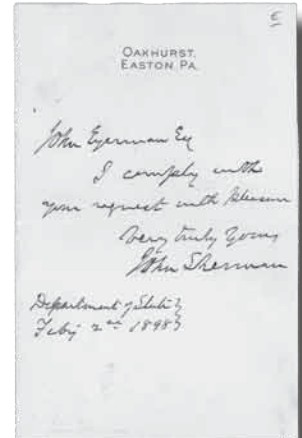 OAKHURST.
EASTON PA.
John Eyerman Esq
I comply with
your request with pleasure
Very truly Yours
John Sherman
Department of State
Feby 2nd 1898